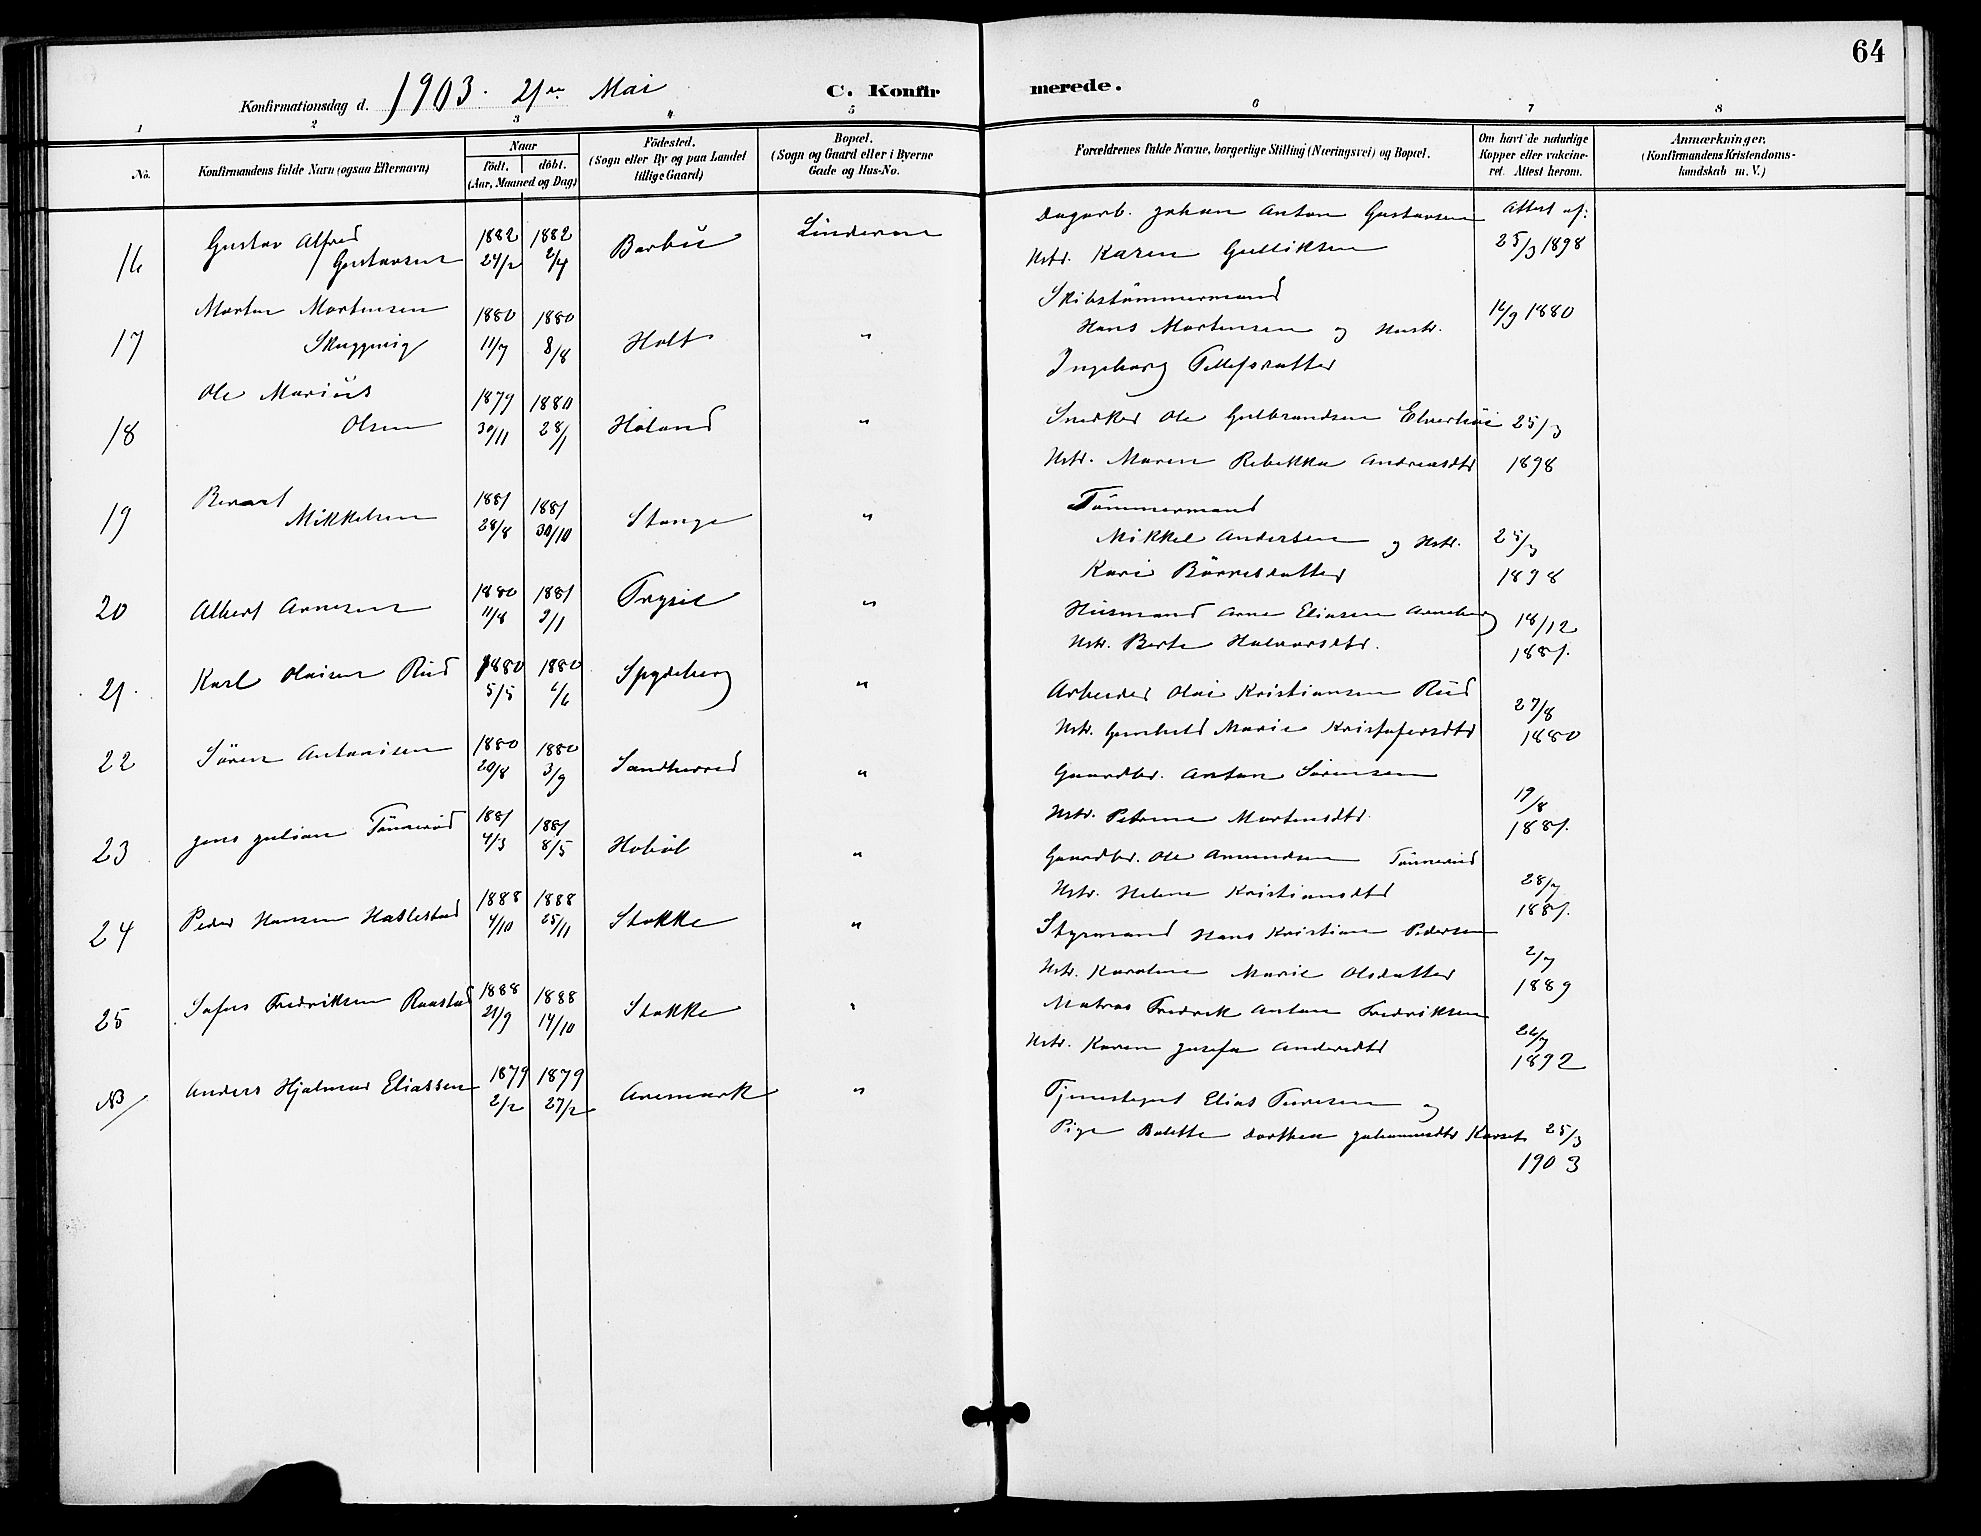 64
Konfirmationsdag d. 1903. 21de Mai
C. Konfirmerede.
1 2 3 4 5 6 7 8
No.
Konfirmandens fulde Navn (ogsaa Efternavn)
Naar
födt. döbt.
(Aar, Maaned og Dag)
Födested.
(Sogn eller By og paa Landet
tillige Gaard)
Bopæl.
(Sogn og Gaard eller i Byerne
Gade og Hus-No.
Forældrenes fulde Navne, borgerlige Stilling (Næringsvei) og Bopæl.
Om havt de naturlige
Kopper eller vakcine-
ret. Attest herom.
Anmærkninger.
(Konfirmandens Kristendoms-
kundskab m. V.)
16 Gustav Alfred 1882 1882 Barbu Linderne Dagarb. Johan Anton Gustavsen Attest af:
Gustavsen 24/2 2/4 Hstr. Karen Gulliksen 25/3 1898
17 Morten Mortensen 1880 1880 Holt " Skibstömmermand 16/9 1880
Skuggevig 11/7 8/8 Hans Mortensen og Hustr.
Ingeborg Tellefsdatter
18 Ole Marius 1879 1880 Höland " Snedker Ole Gulbrandsen Elverhöi 25/3
Olsen 30/11 28/1 Hstr. Maren Rebekka Andreasdtr 1898
19 Bernt 1881 1881 Stange " Tömmermand
Mikkelsen 28/8 30/10 Mikkel Andersen og Hstr. 25/3
Kari Börresdatter 1898
20 Albert Arnesen 1880 1881 Trysil " Husmand Arne Eliasen Arneberg 18/12
11/8 2/1 Hstr. Berte Halvorsdtr. 1881.
21. Karl Olaisen Rud 1880 1880 Spydeberg " Arbeider Olai Kristiansen Rud 27/8
5/5 6/6 Hstr. Gunhild Marie Kristofersdtr 1880
22 Sören Antonisen 1880 1880 Sandherred " Gaardbr. Anton Sörensen 19/8
20/8 3/9 Hstr. Petrine Mortensdtr. 1881.
23 Jens Julian Tönneröd 1881 1881 Haböl " Gaardbr. Ole Amundsen Tönneröd 28/7
4/3 8/5 Hstr. Helene Kristiansdtr 1881.
24 Peder Hansen Haslestad 1888 1888 Stokke " Styrmand Hans Kristian Pedersen 2/7
4/10 25/11 Hstr. Karoline Marie Olsdatter 1889
25 Sofus Fredriksen Raastad 1888 1888 Stokke " Matros Fredrik Anton Fredriksen 26/7
21/9 14/10 Hstr. Karen Josefa Andersdtr 1892
NB/ Anders Hjalmar Eliassen 1879 1879 Aremark " Tjenestegut Elias Turesen og
2/2 27/2 Pige Bolette Dorthea Johannesdtr 25/3
1903